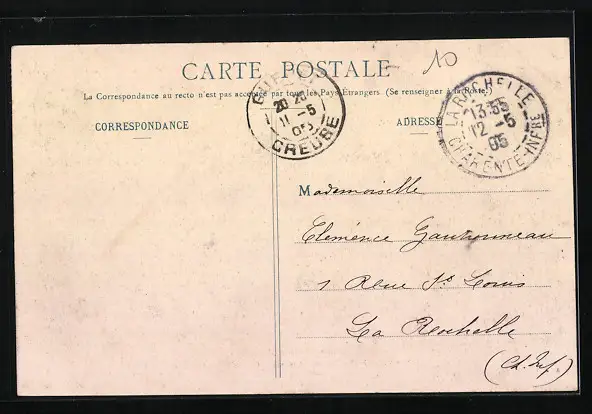 10
CARTE POSTALE
La Correspondance au recto n'est pas acceptée par tous les Pays Étrangers. (Se renseigner à la Poste)
CORRESPONDANCE
ADRESSE
20 20
11 -5
05
CREUSE
LA ROCHELLE
13·55
12 -5
05
CHARENTE-INFRE
Mademoiselle
Clémence
1 Rue St Louis
La Rochelle
(Ch. Inf.)